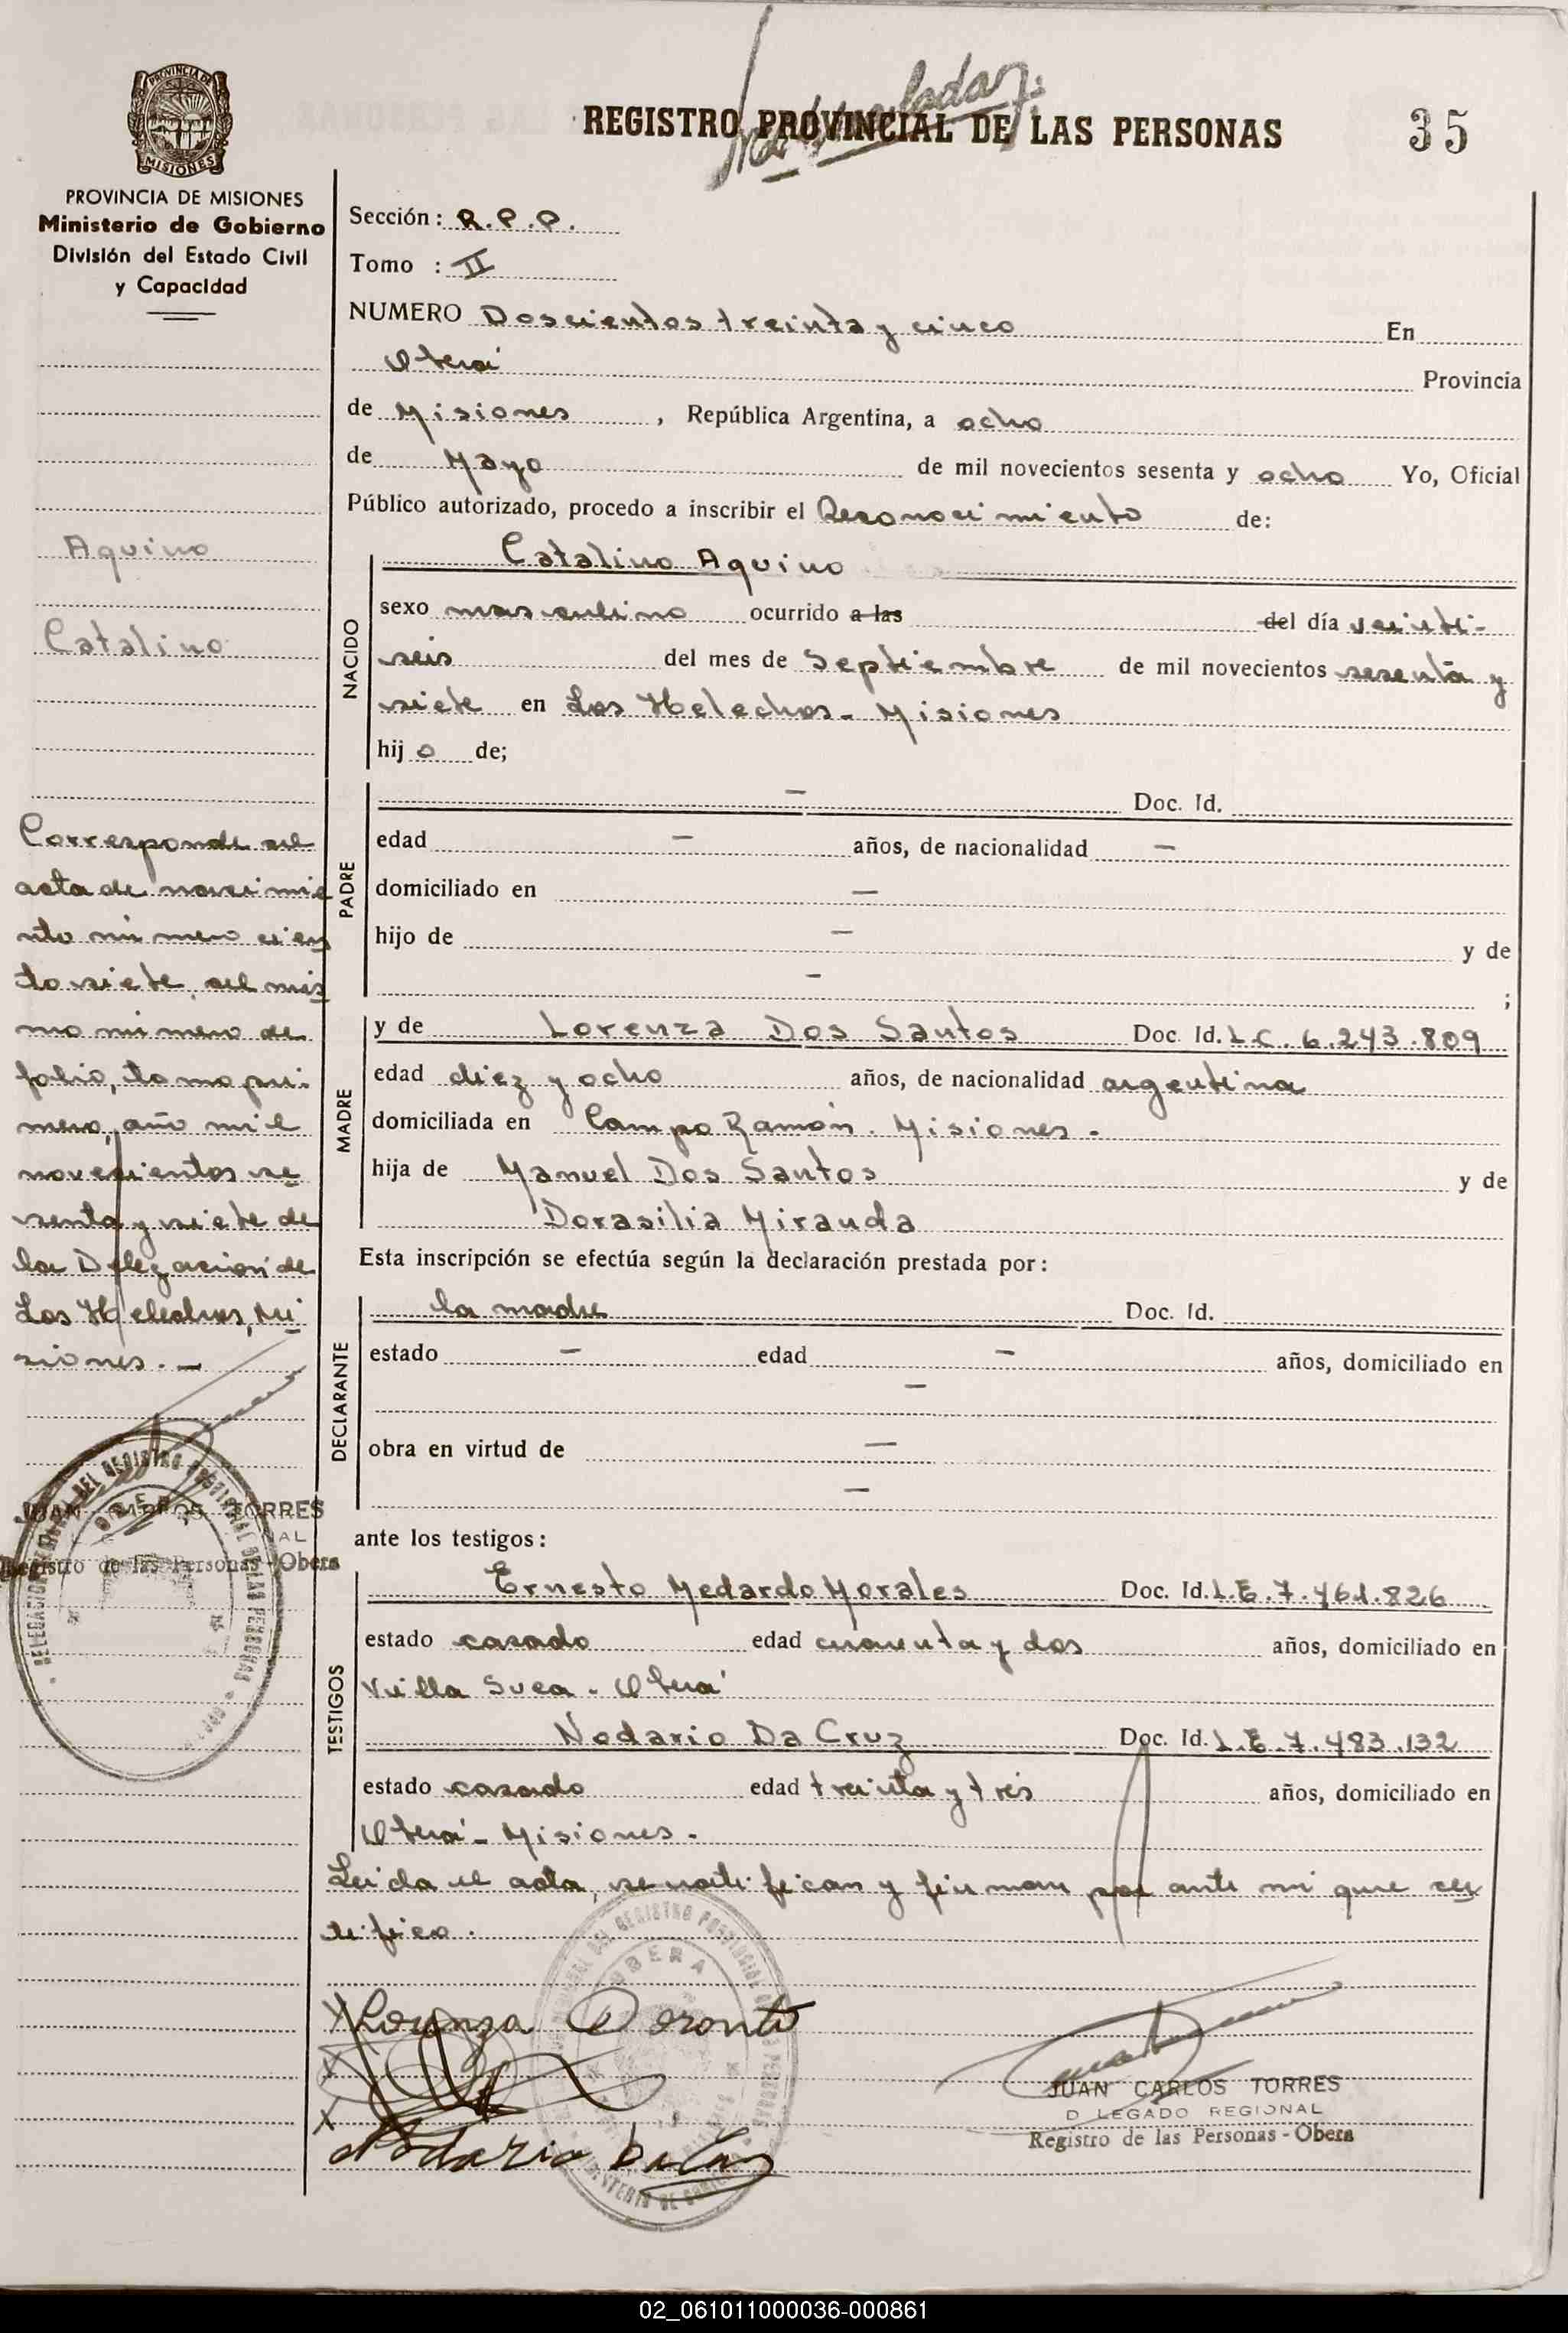 REGISTRO PROVINCIAL DE LAS PERSONAS
35
PROVINCIA DE
MISIONES
PROVINCIA DE MISIONES
Ministerio de Gobierno
División del Estado Civil
y Capacidad
Sección: R.P.P.
Tomo : II
NUMERO Doscientos treinta y cinco En
Oberá Provincia
de Misiones, República Argentina, a ocho
de Mayo de mil novecientos sesenta y ocho Yo, Oficial
Público autorizado, procedo a inscribir el Reconocimiento de:
Aquino
Catalino
NACIDO
Catalino Aquino
sexo masculino ocurrido a las del día veinti-
seis del mes de Septiembre de mil novecientos sesenta y
siete en Los Helechos - Misiones
hijo de;
Corresponde al
acta de nacimie
nto número cien
to siete, al mis
mo número de
folio, tomo pri-
mero, año mil
novecientos se
senta y siete de
la Delegación de
Los Helechos, Mi
siones. -
PADRE
— Doc. Id.
edad — años, de nacionalidad —
domiciliado en —
hijo de — y de
— ;
MADRE
y de Lorenza Dos Santos Doc. Id. L.C. 6.243.809
edad diez y ocho años, de nacionalidad argentina
domiciliada en Campo Ramón. Misiones.-
hija de Manuel Dos Santos y de
Dorasilia Miranda
Esta inscripción se efectúa según la declaración prestada por:
DECLARANTE
la madre Doc. Id.
estado — edad — años, domiciliado en
—
obra en virtud de —
—
JUAN CARLOS TORRES
Registro de las Personas - Obera
ante los testigos:
TESTIGOS
Ernesto Medardo Morales Doc. Id. L.E. 7.461.826
estado casado edad cuarenta y dos años, domiciliado en
Villa Svea - Oberá
Nodario Da Cruz Doc. Id. L.E. 7.483.132
estado casado edad treinta y tres años, domiciliado en
Oberá - Misiones.-
Leida el acta, se ratifican y firman por ante mi que cer
tifico.
OBERA
Lorenza
Nodario Da Cruz
JUAN CARLOS TORRES
D LEGADO REGIONAL
Registro de las Personas - Obera
02_061011000036-000861